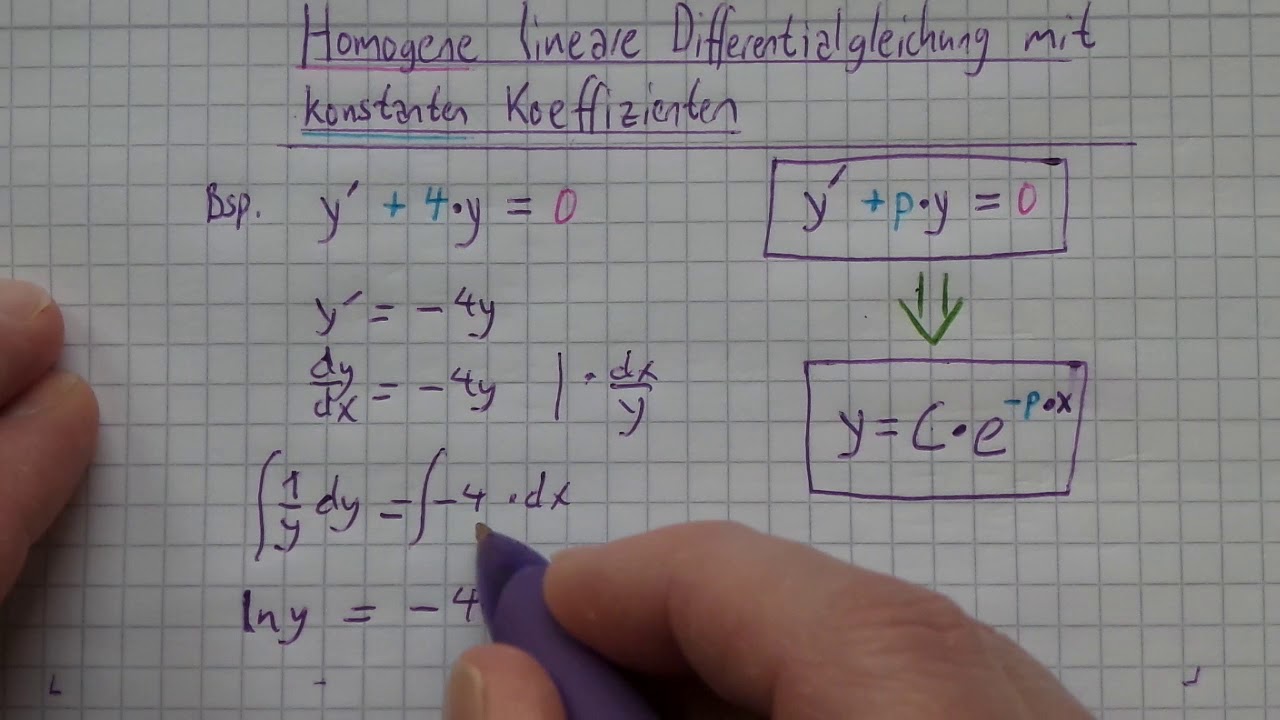 Homogene lineare Differentialgleichung mit
konstanten Koeffizienten
Bsp. y′ + 4·y = 0
y′ = −4y
dy/dx = −4y | · dx/y
∫ 1/y dy = ∫ −4 · dx
ln y = −4
y′ + p·y = 0
⇓
y = C·e^(−p·x)